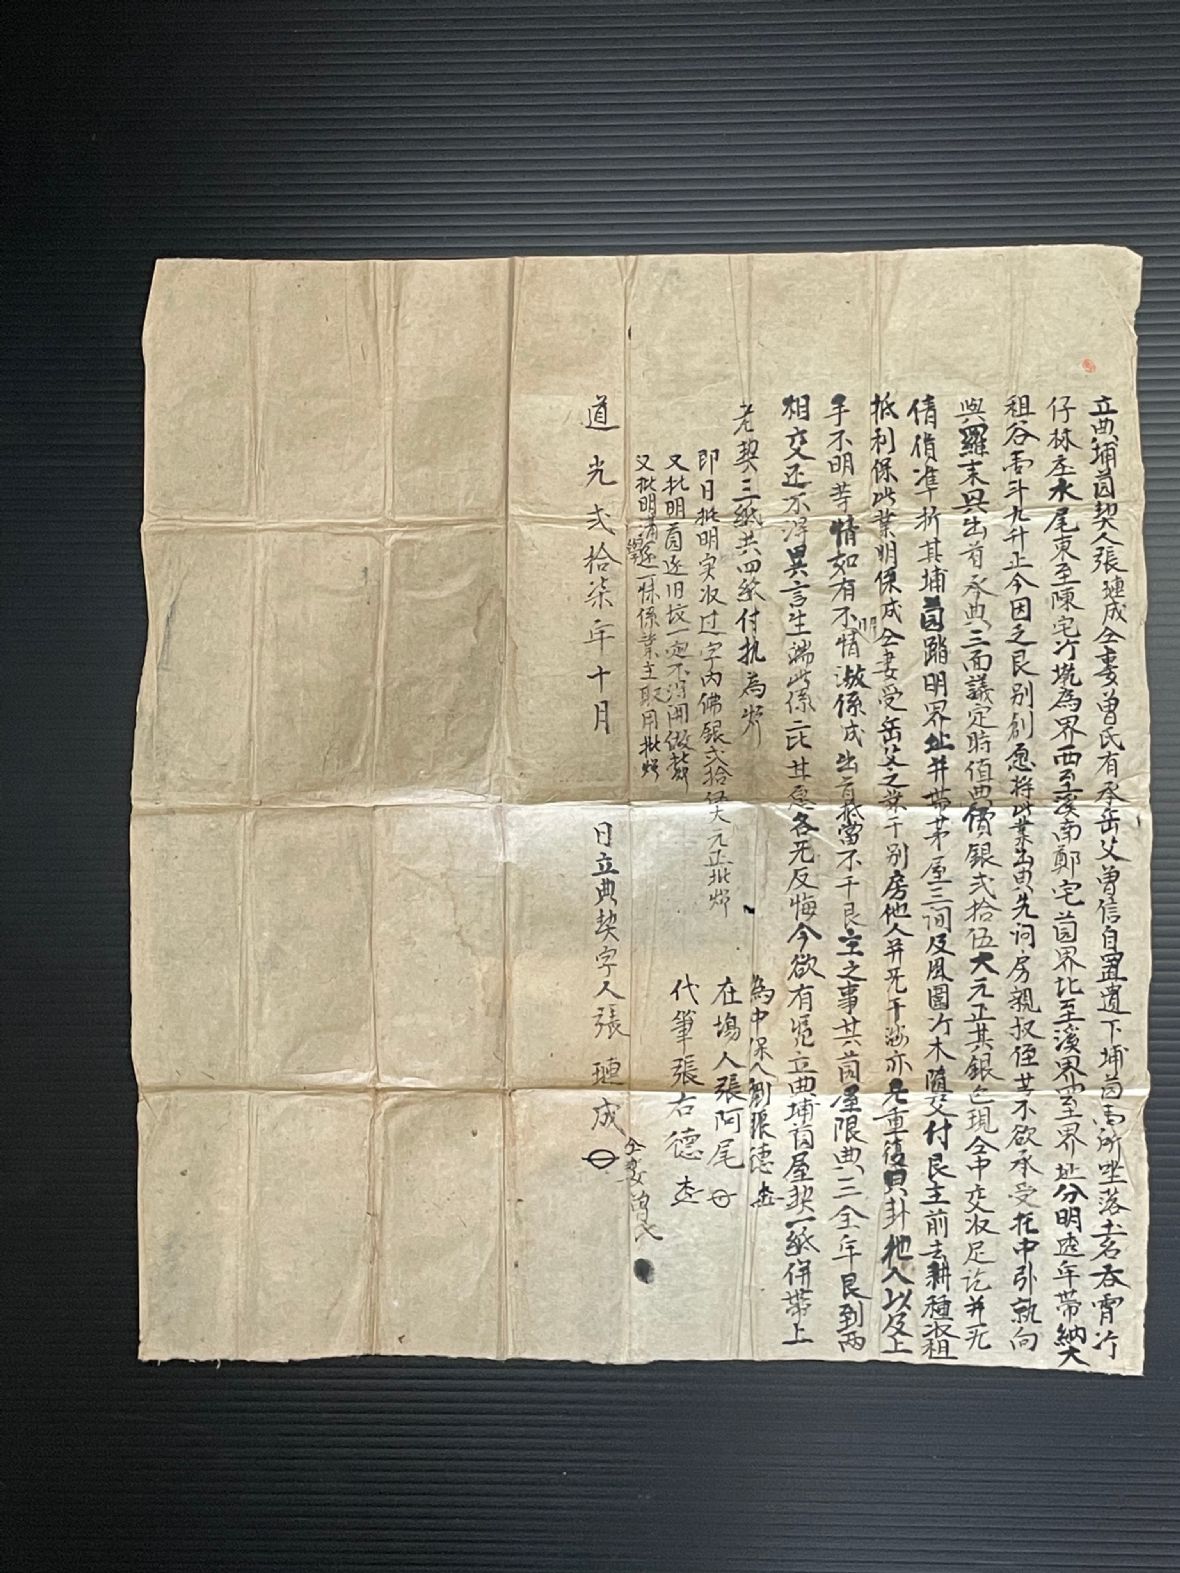 立典埔茵契人張璉成仝妻曾氏有承岳父曾信自置遺下埔茵壹所坐落土名吞霄竹
仔林庄水尾東至陳宅竹坑為界西至溪南鄭宅茵界北至溪界四至界址分明遞年帶納大
租谷壹斗九升正今因乏艮別創愿將此業出典先问房親叔侄等不欲承受托中引就向
與羅末興出首承典三面議定時值典價銀弍拾伍大元正其銀色現仝中交收足訖并无
債貨准折其埔茵踏明界址并帶茅屋三间及風圍竹木隨交付艮主前去耕種收租
抵利保此業明係成仝妻受岳父之業干別房他人并无干涉亦无重復典卦他人以及上
手不明等情如有不明情獘係成出首抵當不干艮主之事其茵屋限典三全年艮到兩
相交还不得異言生端此係二比甘愿各无反悔今欲有凭立典埔茵屋契一紙併帶上
老契三紙共四紙付执為炤
即日批明实收过字內佛銀弍拾伍大元正批炤
又批明茵还旧坟一穴不得開做批炤
又批明清還一條係業主取用批炤
為中保人劉張德
在場人張阿尾
代筆張右德
仝妻曾氏
道光弍拾柒年十月 日立典契字人張璉成